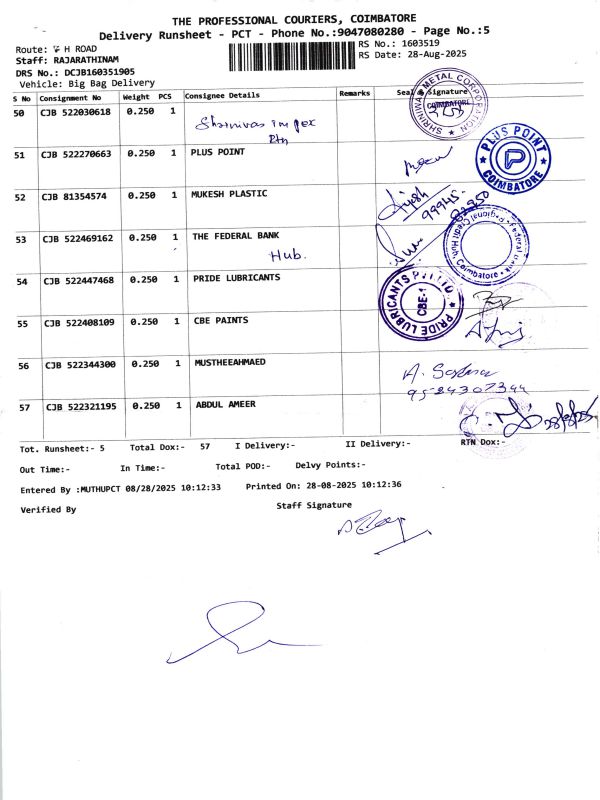 THE PROFESSIONAL COURIERS, COIMBATORE
Delivery Runsheet - PCT - Phone No.:9047080280 - Page No.:5
Route: V H ROAD
RS No.: 1603519
Staff: RAJARATHINAM
RS Date: 28-Aug-2025
DRS No.: DCJB160351905
Vehicle: Big Bag Delivery
S No Consignment No Weight PCS Consignee Details Remarks Seal Signature
50 CJB 522030618 0.250 1 Shrinivas impex
SHRINIWAS METAL CORPORATION COIMBATORE
51 CJB 522270663 0.250 1 PLUS POINT
PLUS POINT COIMBATORE
52 CJB 81354574 0.250 1 MUKESH PLASTIC
99945
82950
53 CJB 522469162 0.250 1 THE FEDERAL BANK
Hub.
Coimbatore
54 CJB 522447468 0.250 1 PRIDE LUBRICANTS
PRIDE LUBRICANTS PVT LTD CBE-1
55 CJB 522408109 0.250 1 CBE PAINTS
56 CJB 522344300 0.250 1 MUSTHEEAHMAED
57 CJB 522321195 0.250 1 ABDUL AMEER
28/8/25
Tot. Runsheet:- 5 Total Dox:- 57 I Delivery:- II Delivery:- RTN Dox:-
Out Time:- In Time:- Total POD:- Delvy Points:-
Entered By :MUTHUPCT 08/28/2025 10:12:33 Printed On: 28-08-2025 10:12:36
Verified By Staff Signature